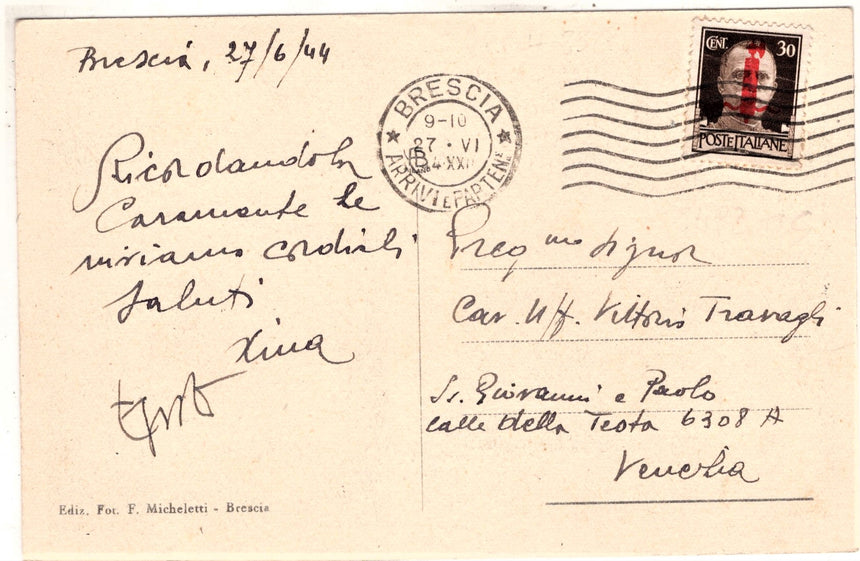 Brescia, 27/6/44
Ricordandola
Caramente le
inviamo cordiali
saluti
Xina
Ediz. Fot. F. Micheletti - Brescia
BRESCIA
9-10
27 • VI
ARRIVI E PARTENZE
CENT. 30
POSTE ITALIANE
Preg mo Signor
Cav. Uff. Vittorio Travagli
Ss. Giovanni e Paolo
calle della Testa 6308 A
Venezia